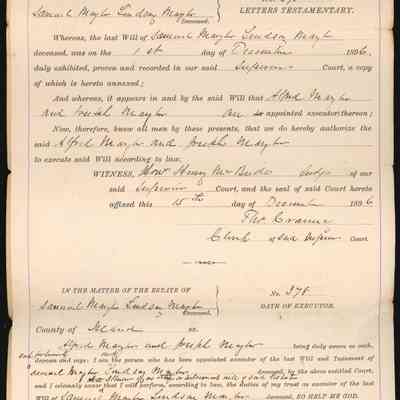 Samuel Maylor Lindsay Maylor
Deceased.
LETTERS TESTAMENTARY.
Whereas, the last Will of Samuel Maylor Lindsay Maylor
deceased, was on the 1st day of December 1896
duly exhibited, proven and recorded in our said Superior Court, a copy
of which is hereto annexed;
And whereas, it appears in and by the said Will that Alfred Maylor
and Joseph Maylor are appointed executors thereon;
Now, therefore, know all men by these presents, that we do hereby authorize the
said Alfred Maylor and Joseph Maylor
to execute said Will according to law.
WITNESS, Hon. Henry McBride Judge of our
said Superior Court, and the seal of said Court hereto
affixed this 15th day of December 1896
Thos. Cranny
Clerk of said Superior Court
IN THE MATTER OF THE ESTATE OF
Samuel Maylor Lindsay Maylor
Deceased.
No. 378
OATH OF EXECUTOR.
County of Island ss.
Alfred Maylor and Joseph Maylor being duly sworn as such,
depose and says: I am the person who has been appointed executor of the last Will and Testament of
Samuel Maylor Lindsay Maylor deceased, by the above entitled Court,
and I solemnly swear that I will perform, according to law, the duties of my trust as executor of the last
Will of Samuel Maylor Lindsay Maylor deceased, SO HELP ME GOD.